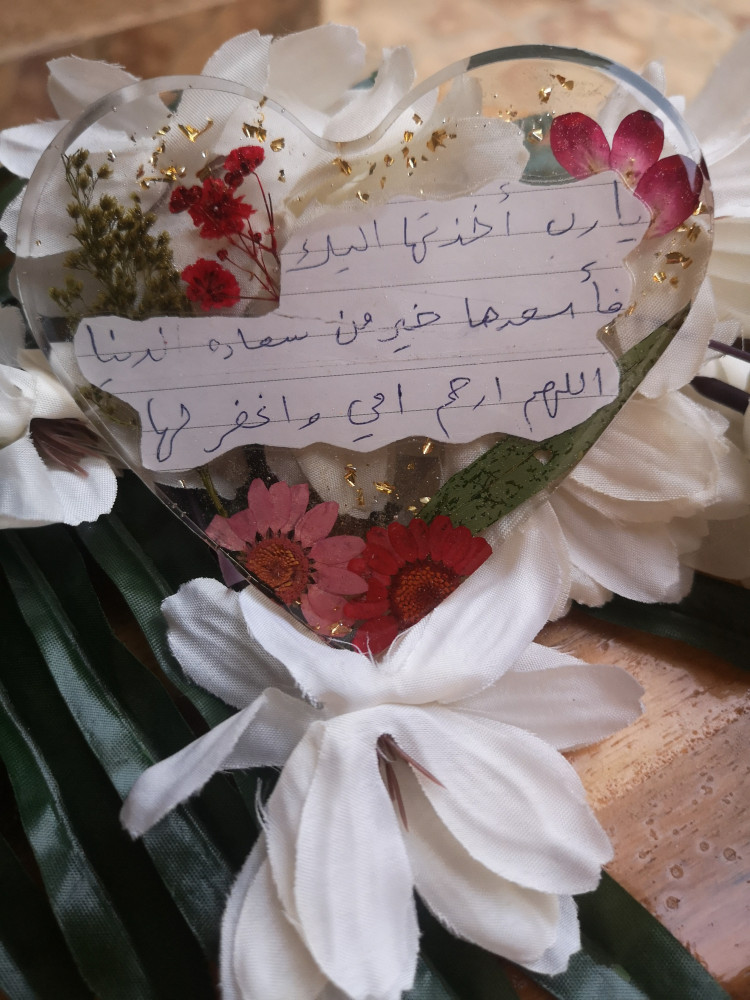 يا رب أخذتها اليك
فأسعدها خير من سعاده لدنيا
اللهم ارحم امي واغفر لها